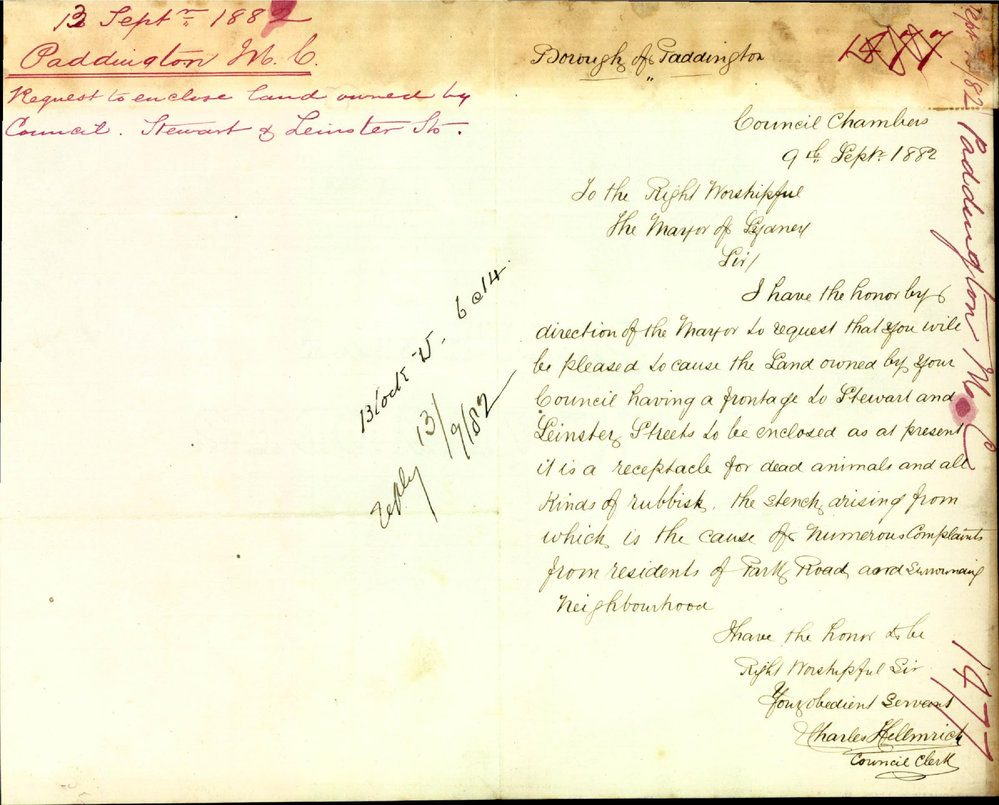 13 Septr 1882
Paddington M. C.
Request to enclose land owned by
Council. Stewart & Leinster Sts.
Block W. 6 a 14.
reply 13/9/82
Borough of Paddington
1477
Council Chambers
9th Septr 1882
To the Right Worshipful
The Mayor of Sydney
Sir/
I have the honor by
direction of the Mayor to request that you will
be pleased to cause the Land owned by your
Council having a frontage to Stewart and
Leinster Streets to be enclosed as at present
it is a receptacle for dead animals and all
Kinds of rubbish, the stench arising from
which is the cause of numerous Complaints
from residents of Park Road and
Neighbourhood
I have the honor to be
Right Worshipful Sir
Your obedient Servant
Charles Hellmrich
Council Clerk
Sept /82 Paddington M. C.
1477